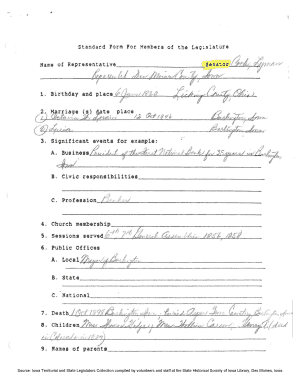 Standard Form For Members of the Legislature
Name of Representative Senator Cook, Lyman
Represented Des Moines County, Iowa
1. Birthday and place 6 June 1820 Licking County, Ohio
2. Marriage (s) date place
(1) 12 Oct 1846 Burlington, Iowa
(2) Burlington Iowa
3. Significant events for example:
A. Business President of the First National Bank for 25 years in Burlington
Iowa
B. Civic responsibilities
C. Profession Banker
4. Church membership
5. Sessions served 6th, 7th General Assemblies 1856, 1858
6. Public Offices
A. Local Mayor of Burlington
B. State
C. National
7. Death 1898 Burlington, Iowa; buried Aspen Grove Cemetery, Burlington, Iowa
8. Children Mrs. Mrs. died
in Colorado in
9. Names of parents
Source: Iowa Territorial and State Legislators Collection compiled by volunteers and staff at the State Historical Society of Iowa Library, Des Moines, Iowa.